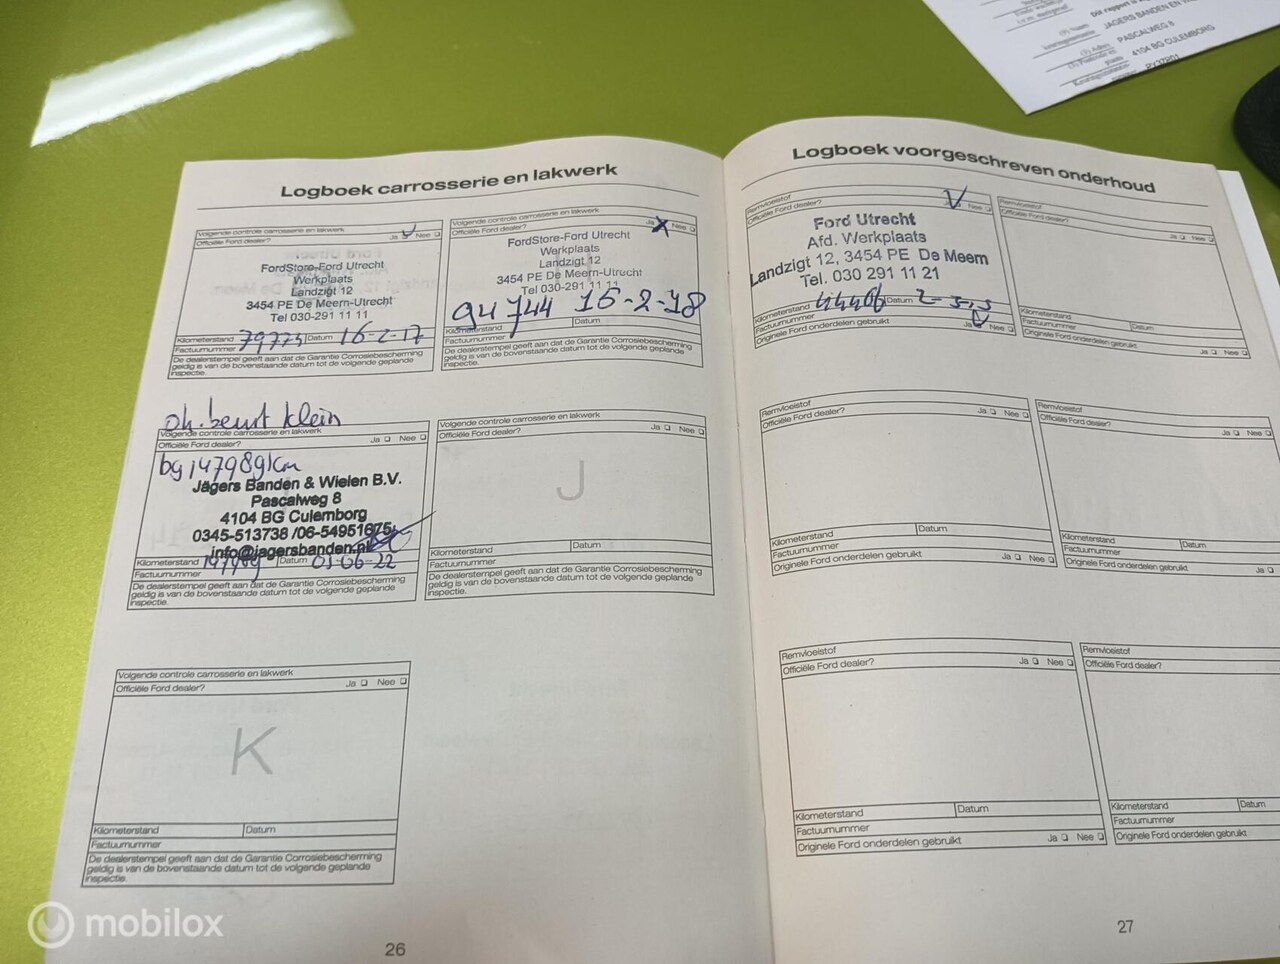 JAGERS BANDEN EN
PASCALWEG 8
4104 BG CULEMBORG
Logboek carrosserie en lakwerk
Volgende controle carrosserie en lakwerk
Officiële Ford dealer? Ja Nee
FordStore-Ford Utrecht
Werkplaats
Landzigt 12
3454 PE De Meern-Utrecht
Tel 030-291 11 11
Kilometerstand 79773 Datum 16-2-17
Factuurnummer
De dealerstempel geeft aan dat de Garantie Corrosiebescherming
geldig is van de bovenstaande datum tot de volgende geplande
inspectie.
Volgende controle carrosserie en lakwerk
Officiële Ford dealer? Ja Nee
FordStore-Ford Utrecht
Werkplaats
Landzigt 12
3454 PE De Meern-Utrecht
Tel 030-291 11 11
94744 15-2-18
Kilometerstand Datum
Factuurnummer
De dealerstempel geeft aan dat de Garantie Corrosiebescherming
geldig is van de bovenstaande datum tot de volgende geplande
inspectie.
oh. beurt klein
Volgende controle carrosserie en lakwerk
Officiële Ford dealer? Ja Nee
bij 147989km
Jägers Banden & Wielen B.V.
Pascalweg 8
4104 BG Culemborg
0345-513738 /06-54951675
info@jagersbanden.nl
Kilometerstand 147989 Datum 03-06-22
Factuurnummer
De dealerstempel geeft aan dat de Garantie Corrosiebescherming
geldig is van de bovenstaande datum tot de volgende geplande
inspectie.
Volgende controle carrosserie en lakwerk
Officiële Ford dealer? Ja Nee
J
Kilometerstand Datum
Factuurnummer
De dealerstempel geeft aan dat de Garantie Corrosiebescherming
geldig is van de bovenstaande datum tot de volgende geplande
inspectie.
Volgende controle carrosserie en lakwerk
Officiële Ford dealer? Ja Nee
K
Kilometerstand Datum
Factuurnummer
De dealerstempel geeft aan dat de Garantie Corrosiebescherming
geldig is van de bovenstaande datum tot de volgende geplande
inspectie.
26
Logboek voorgeschreven onderhoud
Remvloeistof
Officiële Ford dealer? Ja Nee
Ford Utrecht
Afd. Werkplaats
Landzigt 12, 3454 PE De Meern
Tel. 030 291 11 21
Kilometerstand Datum
Factuurnummer
Originele Ford onderdelen gebruikt Ja Nee
Remvloeistof
Officiële Ford dealer? Ja Nee
Kilometerstand Datum
Factuurnummer
Originele Ford onderdelen gebruikt Ja Nee
Remvloeistof
Officiële Ford dealer? Ja Nee
Kilometerstand Datum
Factuurnummer
Originele Ford onderdelen gebruikt Ja Nee
Remvloeistof
Officiële Ford dealer? Ja Nee
Kilometerstand Datum
Factuurnummer
Originele Ford onderdelen gebruikt Ja
Remvloeistof
Officiële Ford dealer? Ja Nee
Kilometerstand Datum
Factuurnummer
Originele Ford onderdelen gebruikt Ja Nee
Remvloeistof
Officiële Ford dealer?
Kilometerstand Datum
Factuurnummer
Originele Ford onderdelen gebruikt
27
mobilox